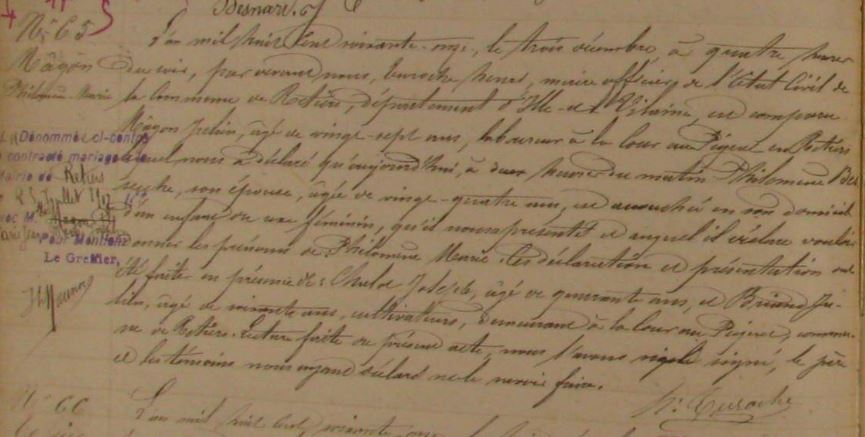 Besnard.
N° 65
Mâgon
Philomène Marie
L'an mil huit cent soixante-onze, le trois décembre à quatre heures
du soir, par devant nous, Henri, maire officier de l'Etat Civil de
la Commune de Retiers, département d'Ille-et-Vilaine, est comparu
Mâgon Julien, âgé de vingt-sept ans, laboureur à la Cour au en Retiers
lequel nous a déclaré qu'aujourd'hui, à deux heures du matin Philomène
son épouse, âgée de vingt-quatre ans, est accouchée en son domicile
d'un enfant de sexe féminin, qu'il nous présente et auquel il déclare vouloir
donner les prénoms de Philomène Marie. Ces déclaration et présentation ont
été faites en présence de: Joseph, âgé de quarante ans, et Briand Ju-
lien, âgé de soixante ans, cultivateurs, demeurant à la Cour au commu-
ne de Retiers. Lecture faite du présent acte, nous l'avons signé, le père
et les témoins nous ayant déclaré ne le savoir faire.
L Dénommée ci-contre
a contracté mariage
Mairie de Retiers
avec M
Pour Mention
Le Greffier,
N° 66
L'an mil huit cent soixante-onze